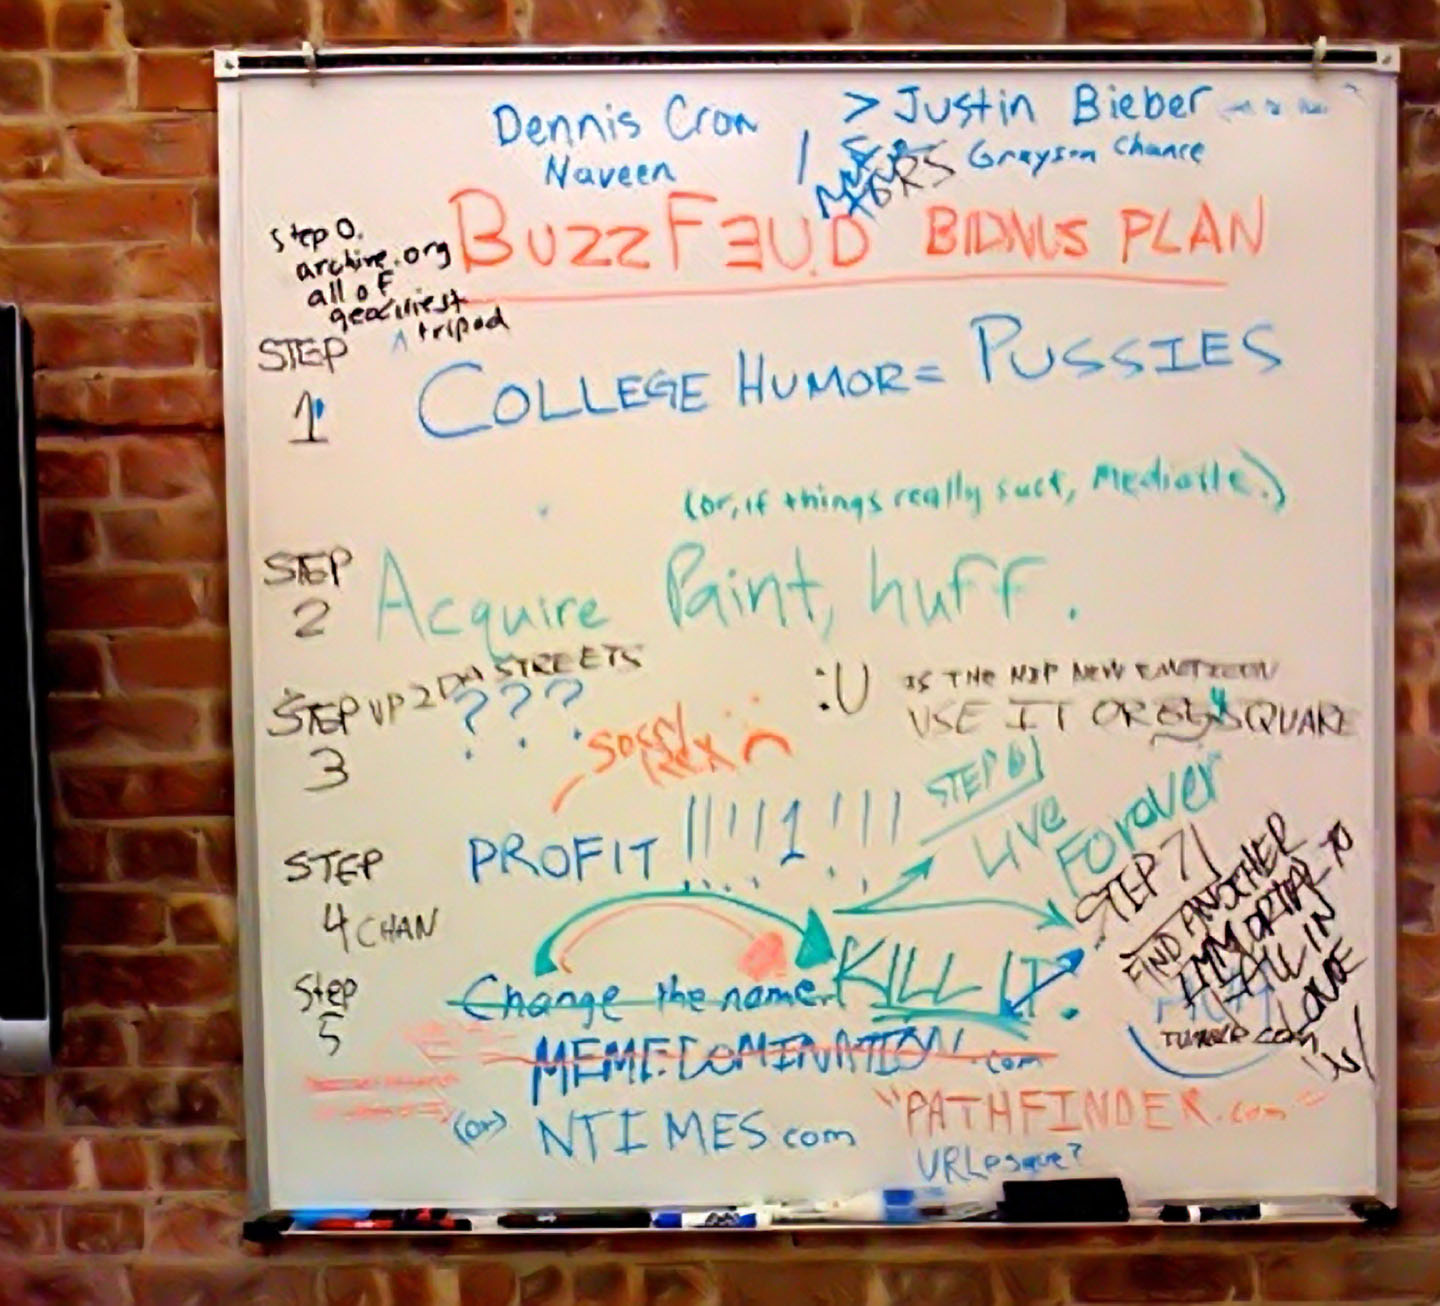 Dennis Crow > Justin Bieber
Naveen / Grayson Chance
BUZZFEUD BIDNUS PLAN
step 0.
archive.org
all of
tripod
STEP
1
COLLEGE HUMOR = PUSSIES
(or, if things really suck, Mediaite.)
STEP
2
Acquire Paint, huff.
STEP UP 2 DA STREETS
3
? ? ?
:U IS THE NEW EMOTICON
USE IT OR BE SQUARE
PROFIT !!!!1!!!
STEP
4 CHAN
STEP 6)
Live
Forover
STEP 7)
FIND ANOTHER
IMMORTAL TO
FALL IN
LOVE
W/
Step
5
Change the name.
KILL IT.
MEME DOMINATION.com
TUMBLR.COM
(or) NTIMES.com
"PATHFINDER.com"
URLesque?